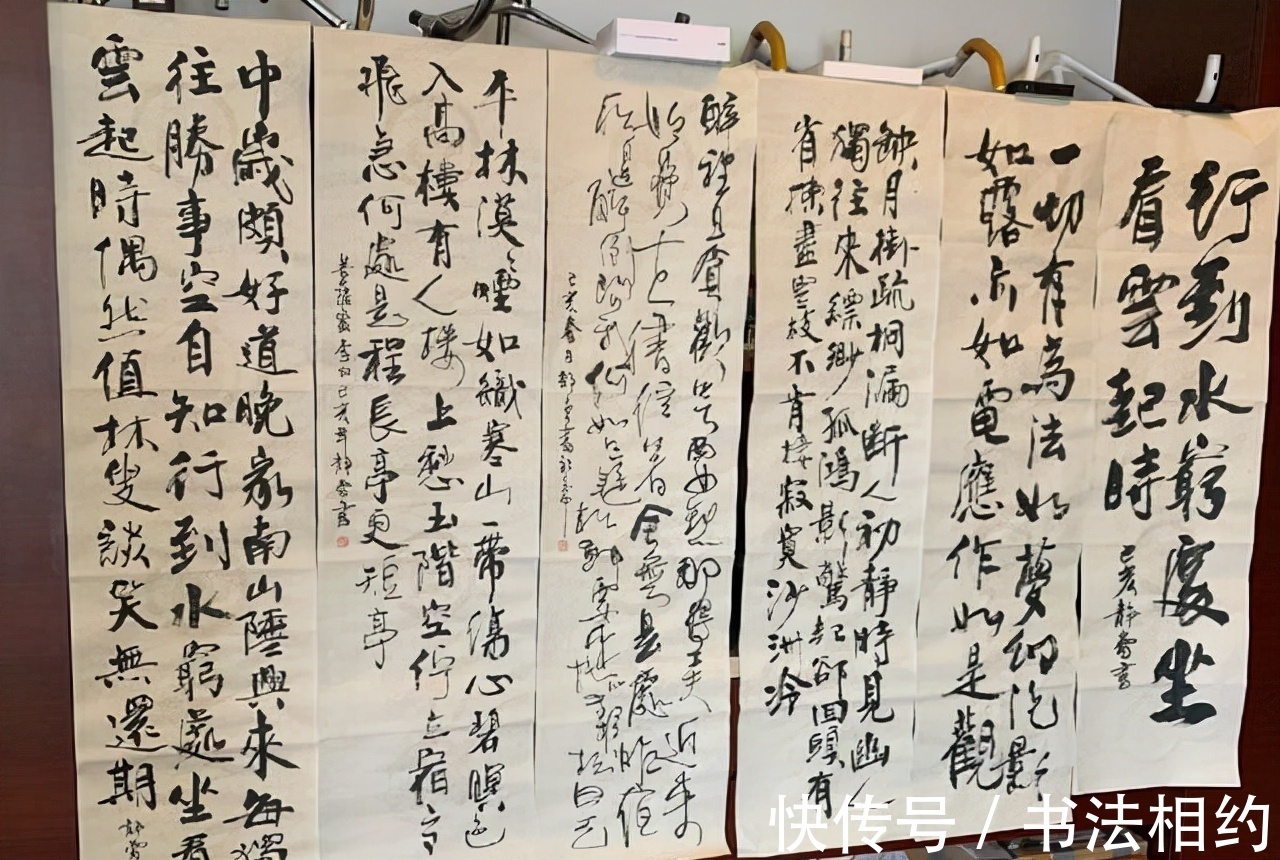 行到水窮處坐
看雲起時
己亥靜齋書
一切有為法如夢幻泡影
如露亦如電應作如是觀
缺月掛疏桐漏斷人初靜時見幽人
獨往來縹緲孤鴻影驚起卻回頭有
省揀盡寒枝不肯棲寂寞沙洲冷
醉裡且貪歡 那得工夫近來
始覺古人書信著全無是處昨
松邊醉倒 我何如 動要來扶 松曰去
己亥春月
平林漠漠煙如織寒山一帶傷心碧暝色
入高樓有人樓上愁玉階空佇立宿鳥
飛急何處是程長亭更短亭
菩薩蠻李白己亥年靜齋書
中歲頗好道晚家南山陲興來每獨
往勝事空自知行到水窮處坐看
雲起時偶然值林叟談笑無還期
快传号/书法相约